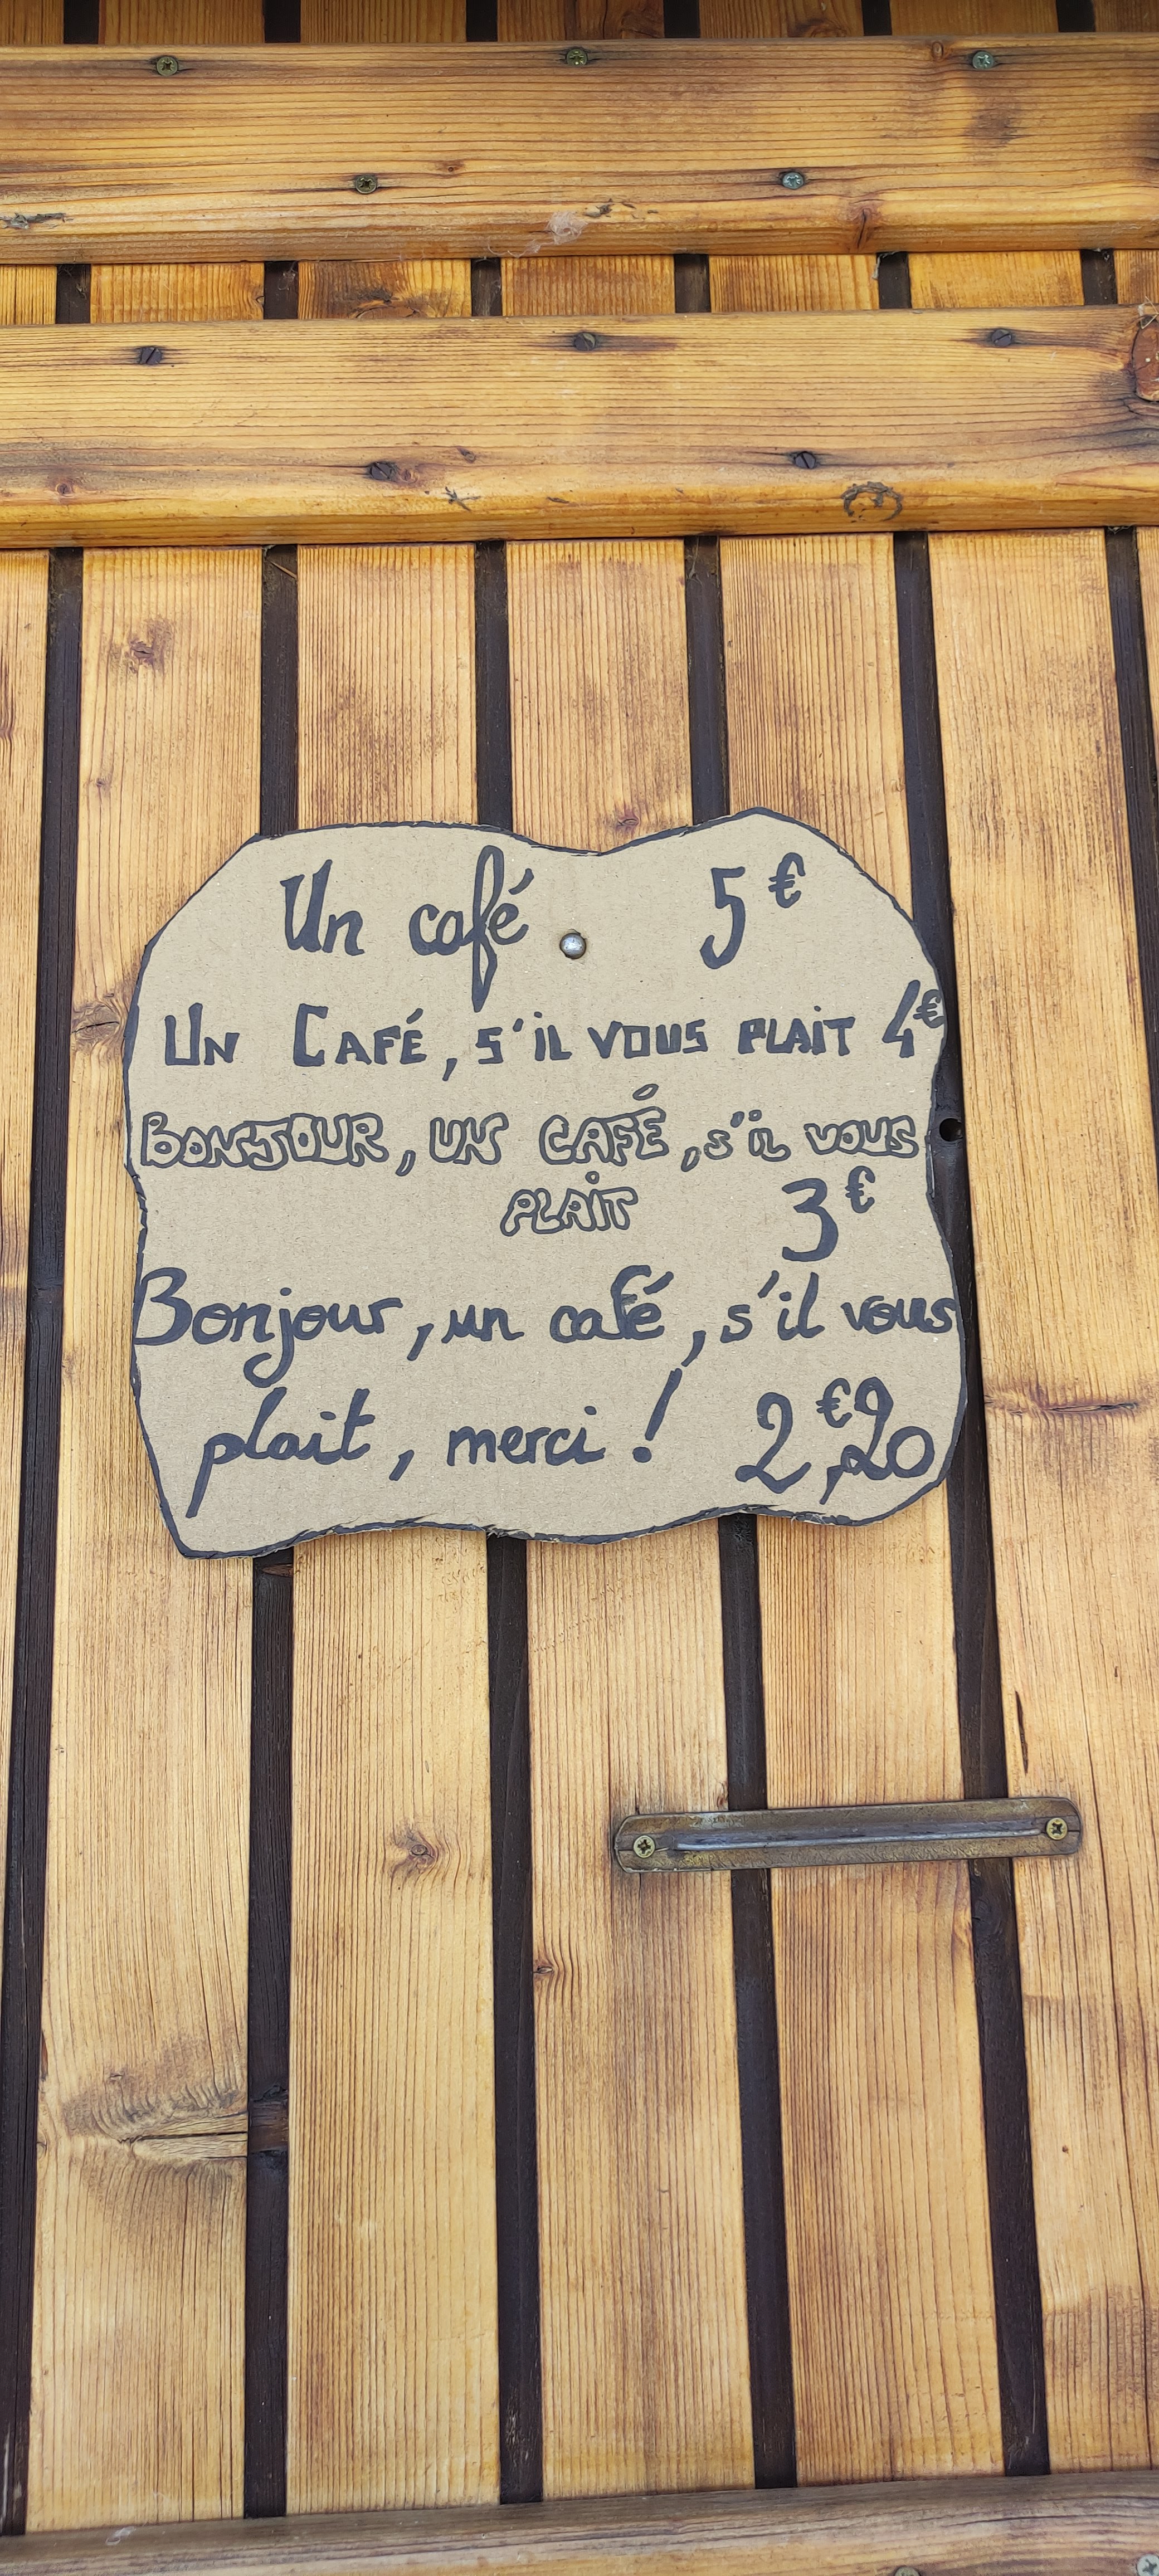 Un café 5€
UN CAFÉ, s'iL VOUS PLAiT 4€
BONJOUR, UN CAFÉ, s'iL VOUS
PLAiT 3€
Bonjour, un café, s'il vous
plait, merci! 2,€20